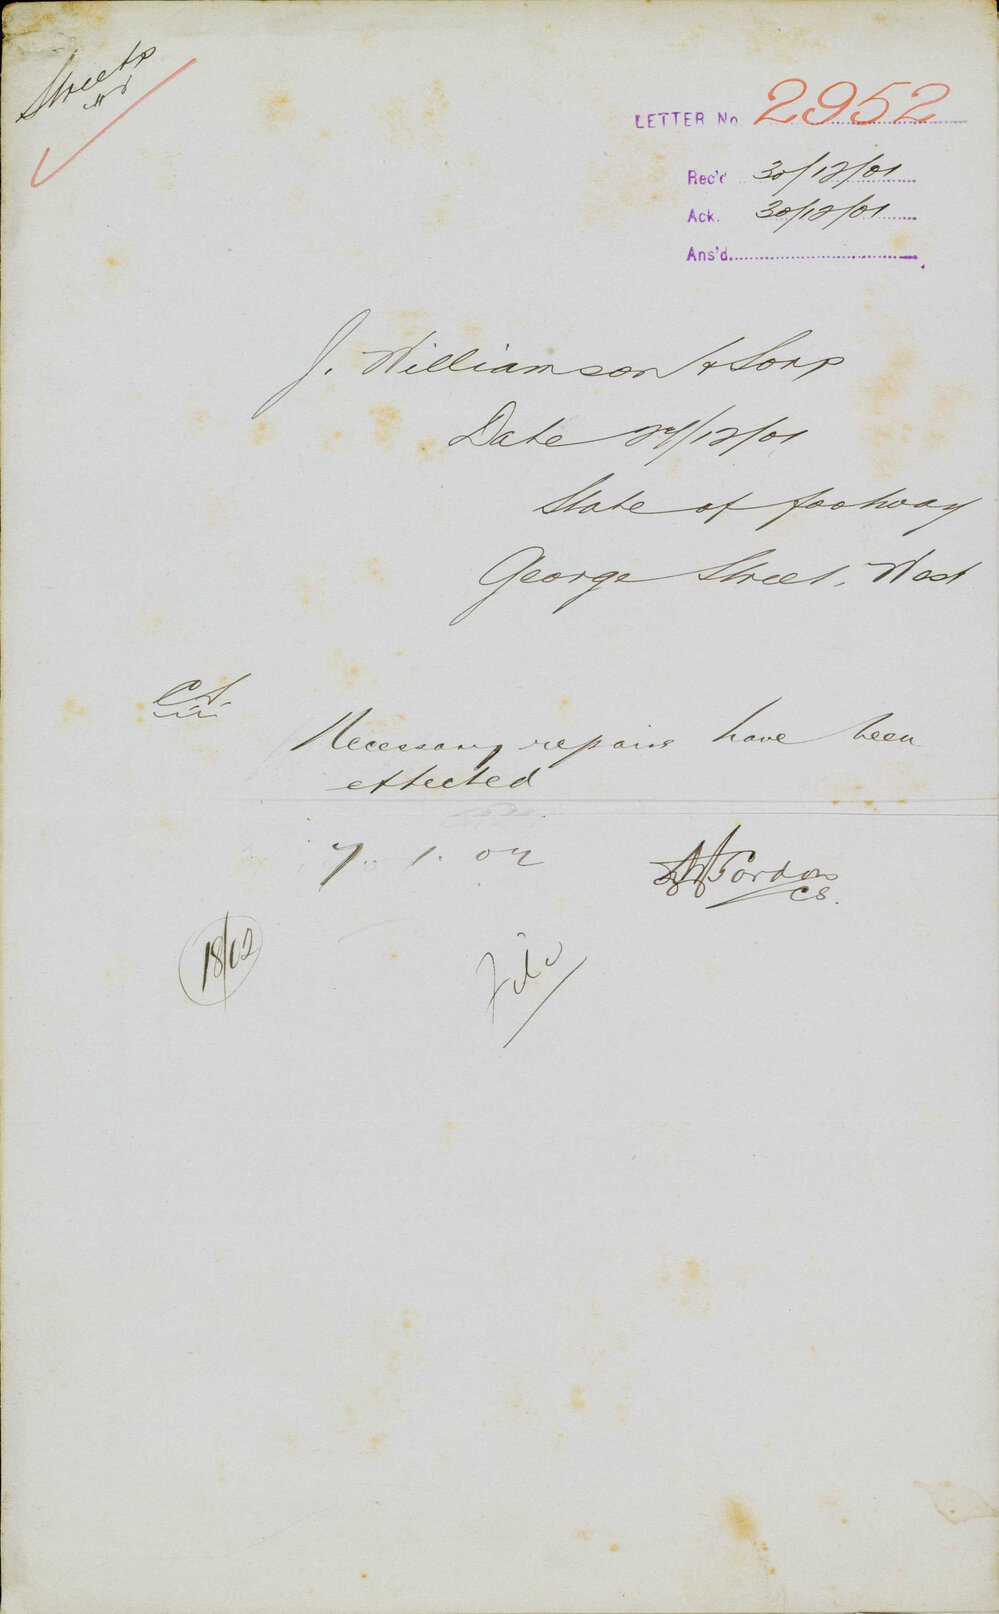 Streets
LETTER No 2952
Rec'd 30/12/01
Ack. 30/12/01
Ans'd
J. Williamson & Sons
Date 27/12/01
State of footway
George Street, West
C.S.
Necessary repairs have been
effected
7. 1. 02
Gordon
CS.
18/02
File